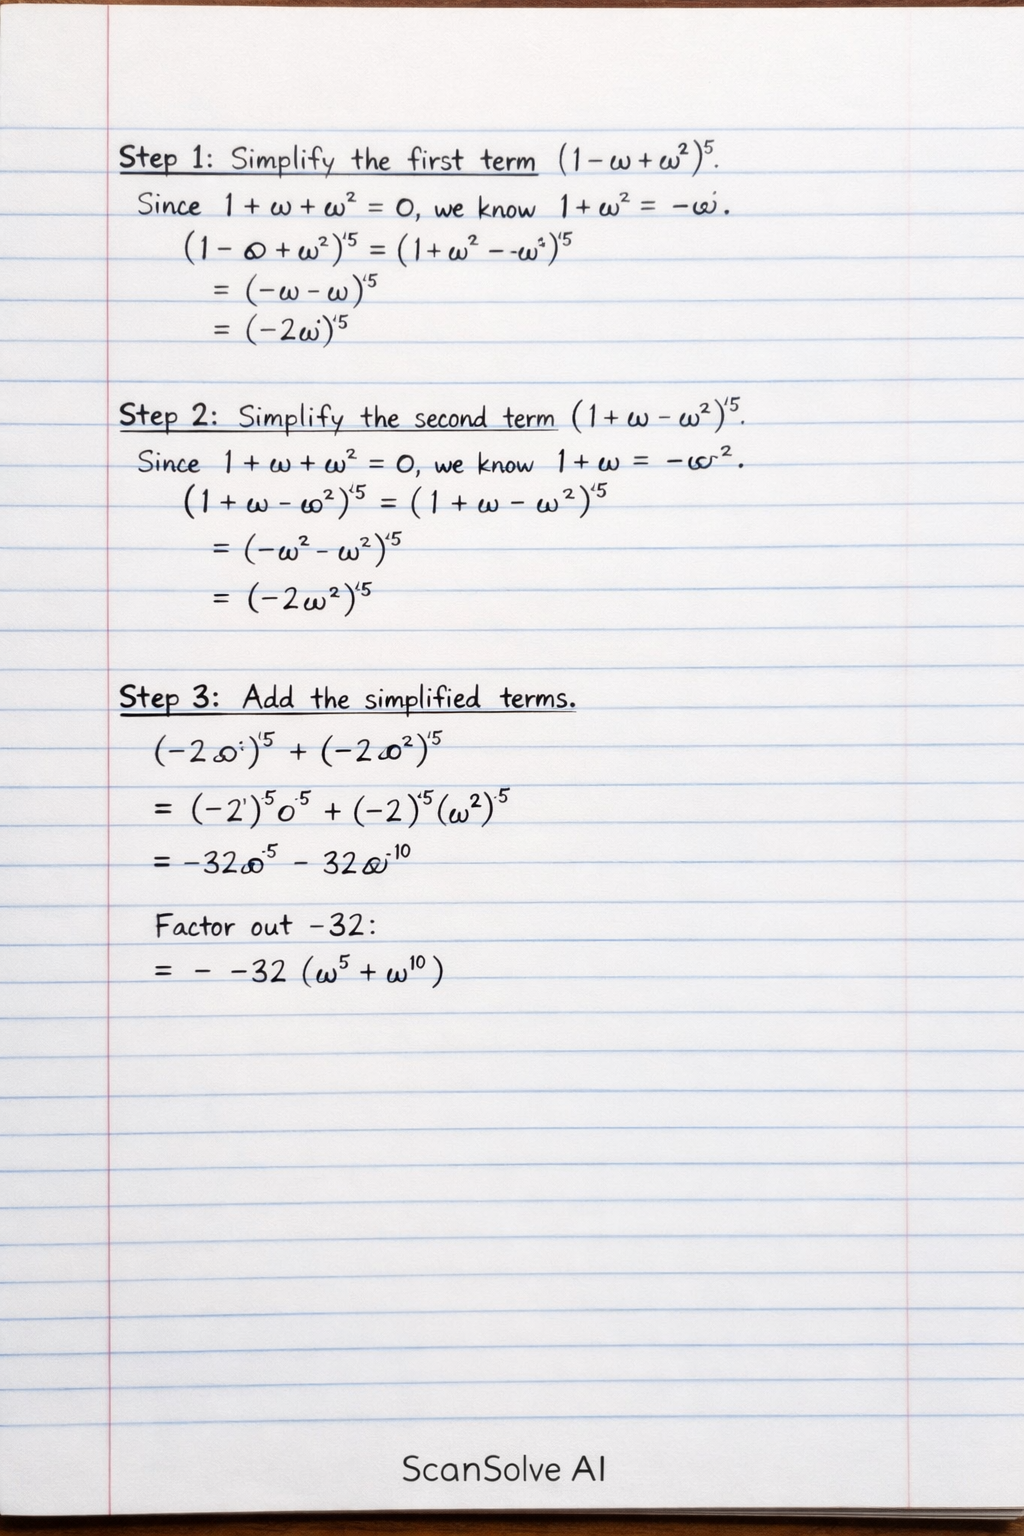 Step 1: Simplify the first term (1 − ω + ω²)⁵.
Since 1 + ω + ω² = 0, we know 1 + ω² = −ω.
(1 − ω + ω²)'⁵ = (1 + ω² − -ω²)'⁵
= (−ω − ω)'⁵
= (−2ω)'⁵
Step 2: Simplify the second term (1 + ω − ω²)'⁵.
Since 1 + ω + ω² = 0, we know 1 + ω = −ω².
(1 + ω − ω²)'⁵ = (1 + ω − ω²)'⁵
= (−ω² − ω²)'⁵
= (−2ω²)'⁵
Step 3: Add the simplified terms.
(−2ω)'⁵ + (−2ω²)'⁵
= (−2')·⁵o·⁵ + (−2)'⁵(ω²)·⁵
= −32ω·⁵ − 32ω·¹⁰
Factor out −32:
= − −32 (ω⁵ + ω¹⁰)
ScanSolve AI